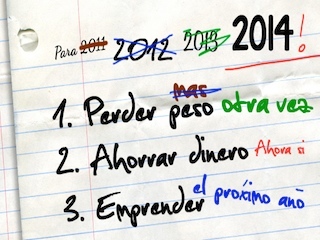 Para 2011 2012 2013 2014!
mas
1. Perder peso otra vez
2. Ahorrar dinero Ahora si
3. Emprender el próximo año